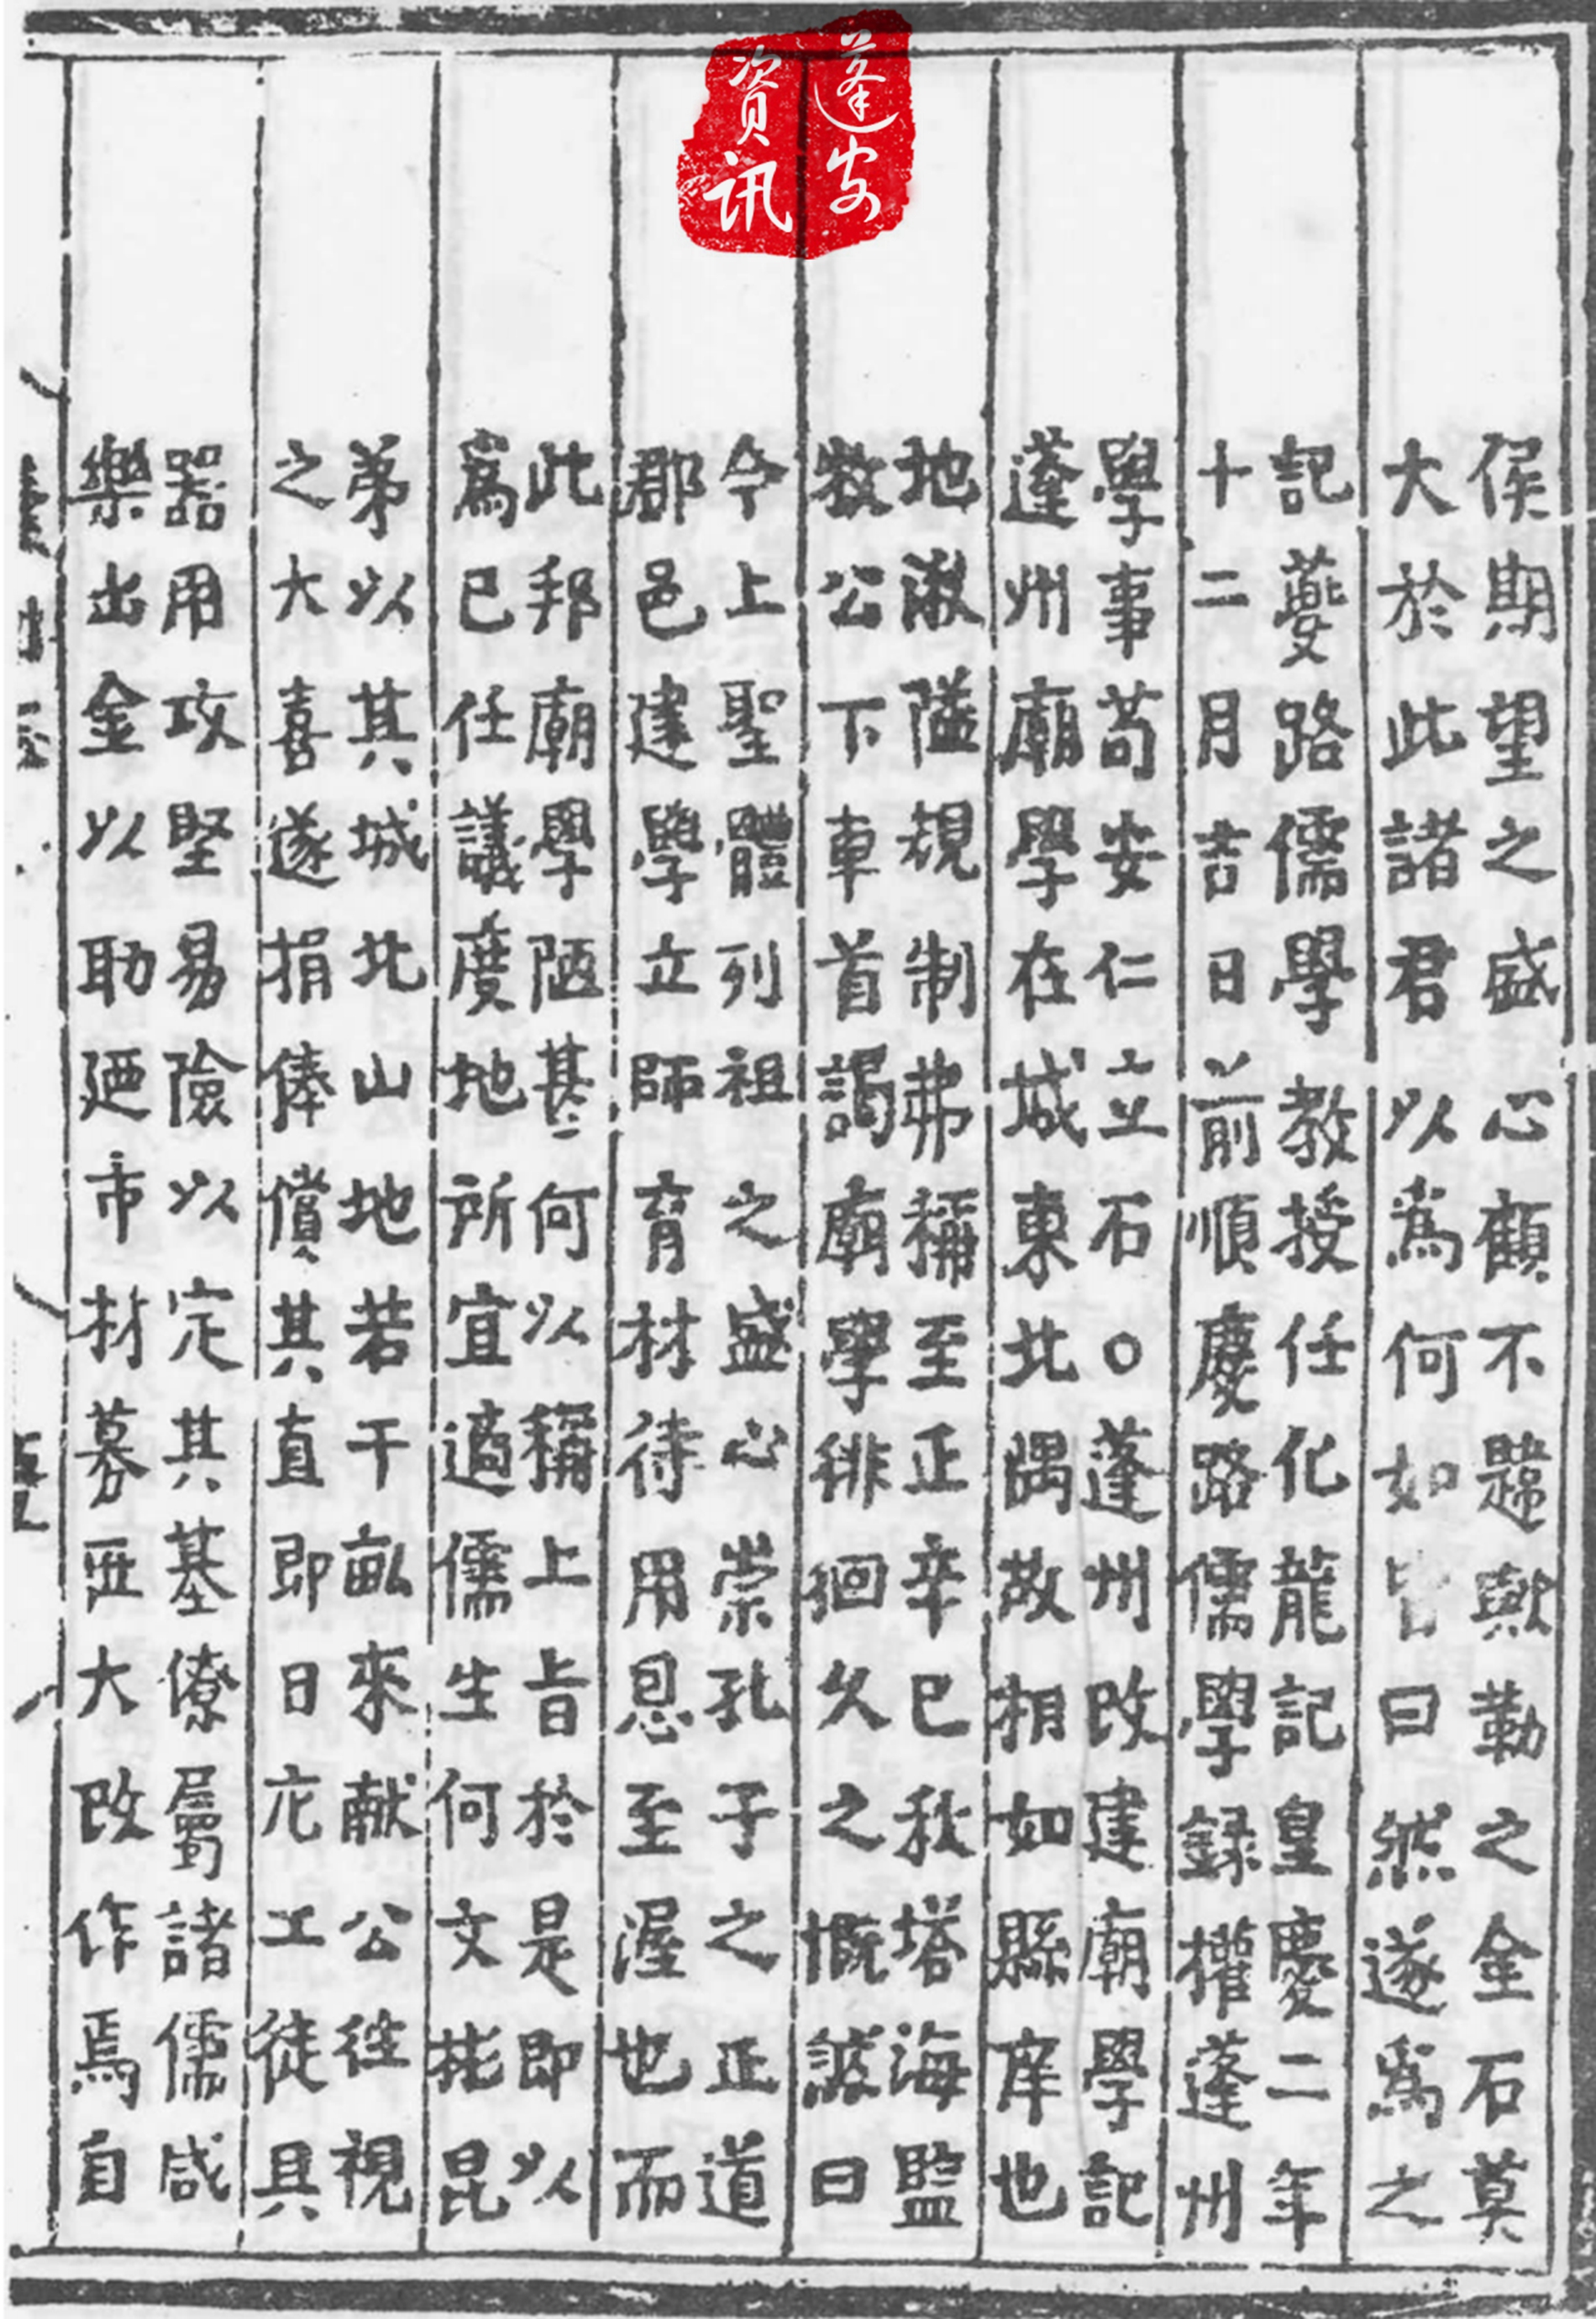 蓬安
資訊
侯期望之盛心顧不韙歟勒之金石莫
大於此諸君以爲何如皆曰然遂爲之
記夔路儒學教授任化龍記皇慶二年
十二月吉日前順慶路儒學録權蓬州
學事苟安仁立石○蓬州改建廟學記
蓬州廟學在城東北隅故相如縣庠也
地湫隘規制弗稱至正辛巳秋塔海監
教公下車首謁廟學徘徊久之慨諗曰
今上聖體列祖之盛心崇孔子之正道
郡邑建學立師育材待用恩至渥也而
此邦廟學陋甚何以稱上旨於是即以
爲己任議度地所宜適儒生何文彬昆
弟以其城北山地若干畝來献公徃視
之大喜遂捐俸償其直即日庀工徒具
器用攻堅易險以定其基僚屬諸儒咸
樂出金以助廼市材募匠大改作焉自